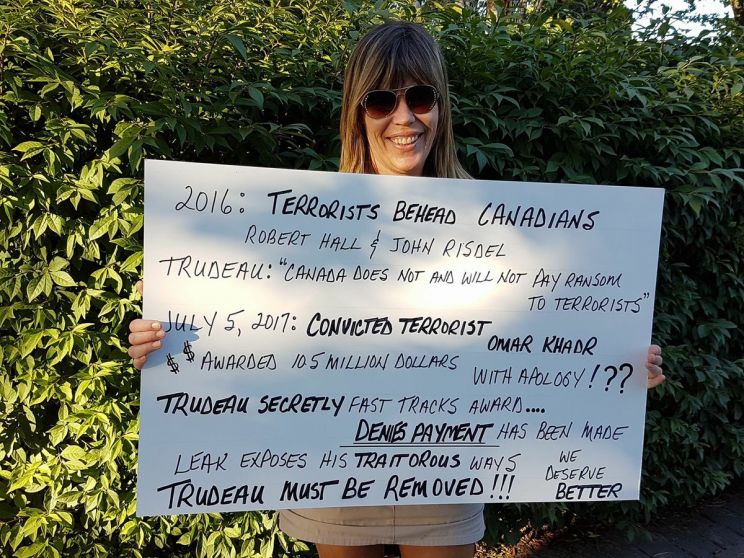 2016: TERRORISTS BEHEAD CANADIANS
ROBERT HALL & JOHN RISDEL
TRUDEAU: "CANADA DOES NOT AND WILL NOT PAY RANSOM
TO TERRORISTS"
JULY 5, 2017: CONVICTED TERRORIST
OMAR KHADR
$$ AWARDED 10.5 MILLION DOLLARS
WITH APOLOGY!??
TRUDEAU SECRETLY FAST TRACKS AWARD....
DENIES PAYMENT HAS BEEN MADE
LEAK EXPOSES HIS TRAITOROUS WAYS
TRUDEAU MUST BE REMOVED!!!
WE
DESERVE
BETTER